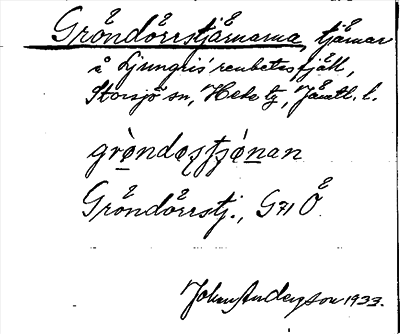 Gröndörrstjärnarna, tjärnar
å Ljungris' renbetesfjäll,
Storsjö sn, Hede tg, Jämtl. l.
Gröndörrstj., G71 Ö
Johan Anderson 1933.